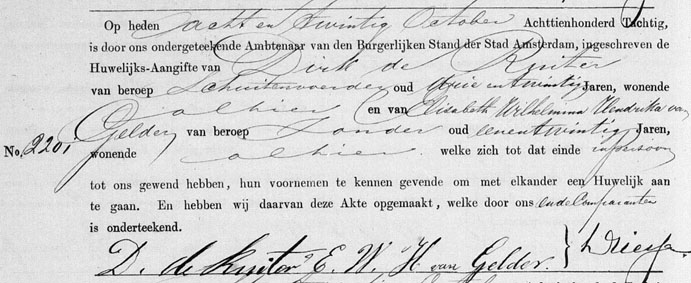 Op heden acht en twintig October Achttienhonderd Tachtig,
is door ons ondergeteekende Ambtenaar van den Burgerlijken Stand der Stad Amsterdam, ingeschreven de
Huwelijks-Aangifte van Dirk de Ruiter
van beroep Schuitenvoerder oud drie en twintig Jaren, wonende
alhier en van Elisabeth Wilhelmina Hendrika van
Gelder van beroep Zonder oud eenentwintig Jaren,
No. 2201 wonende alhier welke zich tot dat einde in persoon
tot ons gewend hebben, hun voornemen te kennen gevende om met elkander een Huwelijk aan
te gaan. En hebben wij daarvan deze Akte opgemaakt, welke door ons en de Comparanten
is onderteekend.
D. de Ruiter E. W. H. van Gelder.